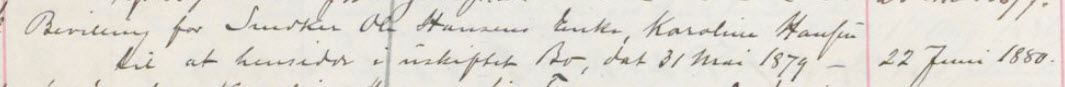 Bevilling for Snedker Ole Hansens Enke, Karoline Hansen
til at hensidde i uskiftet Bo, dat 31 Mai 1879 — 22 Juni 1880.